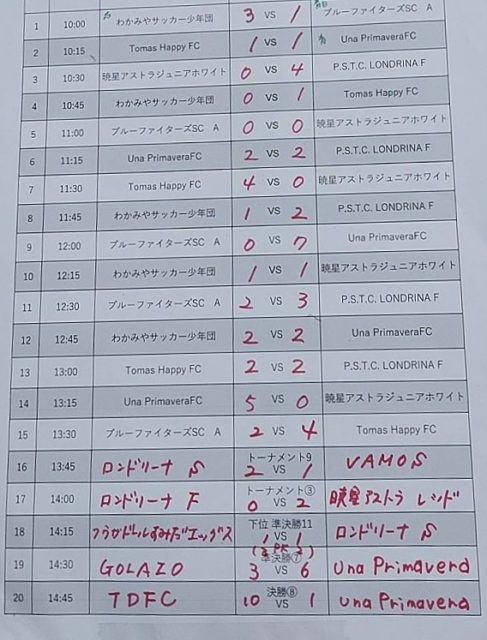 1 10:00 わかみやサッカー少年団 3 VS 1 ブルーファイターズSC A
2 10:15 Tomas Happy FC 1 VS 1 Una PrimaveraFC
3 10:30 暁星アストラジュニアホワイト 0 VS 4 P.S.T.C. LONDRINA F
4 10:45 わかみやサッカー少年団 0 VS 1 Tomas Happy FC
5 11:00 ブルーファイターズSC A 0 VS 0 暁星アストラジュニアホワイト
6 11:15 Una PrimaveraFC 2 VS 2 P.S.T.C. LONDRINA F
7 11:30 Tomas Happy FC 4 VS 0 暁星アストラジュニアホワイト
8 11:45 わかみやサッカー少年団 1 VS 2 P.S.T.C. LONDRINA F
9 12:00 ブルーファイターズSC A 0 VS 7 Una PrimaveraFC
10 12:15 わかみやサッカー少年団 1 VS 1 暁星アストラジュニアホワイト
11 12:30 ブルーファイターズSC A 2 VS 3 P.S.T.C. LONDRINA F
12 12:45 わかみやサッカー少年団 2 VS 2 Una PrimaveraFC
13 13:00 Tomas Happy FC 2 VS 2 P.S.T.C. LONDRINA F
14 13:15 Una PrimaveraFC 5 VS 0 暁星アストラジュニアホワイト
15 13:30 ブルーファイターズSC A 2 VS 4 Tomas Happy FC
トーナメント9
16 13:45 ロンドリーナ S 2 VS 1 VAMOS
トーナメント③
17 14:00 ロンドリーナ F 0 VS 2 暁星アストラ レンド
下位 準決勝11
18 14:15 1 VS 1 ロンドリーナ S
(2 PK 2)
準決勝⑦
19 14:30 GOLAZO 3 VS 6 Una Primavera
決勝⑧
20 14:45 TDFC 10 VS 1 Una Primavera